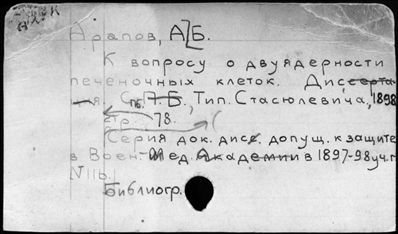 Арапов, А. Б.
К вопросу о двуядерности
печеночных клеток. Диссерта-
ция С.П.Б., Тип. Стасюлевича, 1898
стр. 78.
(Серия док. дисс. допущ. к защите
в Воен. Мед. Академии в 1897-98 уч. г.
N 116)
Библиогр.